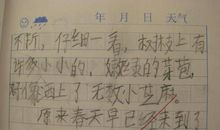 年 月 日 天气
不新，仔细一看，树枝上有
许多小小的，嫩嫩的芽苞，
好像洒上了无数小芝麻。
原来春天早已经来到了